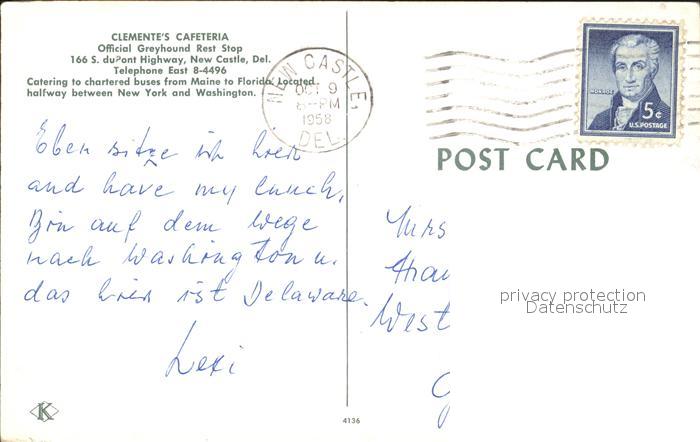 CLEMENTE'S CAFETERIA
Official Greyhound Rest Stop
166 S. duPont Highway, New Castle, Del.
Telephone East 8-4496
Catering to chartered buses from Maine to Florida. Located
halfway between New York and Washington.
NEW CASTLE,
OCT 9
PM
1958
DEL.
MONROE
5¢
U.S. POSTAGE
POST CARD
Eben sitze ich hier
and have my lunch,
Bin auf dem Wege
nach Washington u.
das hier ist Delaware.
Mrs
West
privacy protection
Datenschutz
K
4136